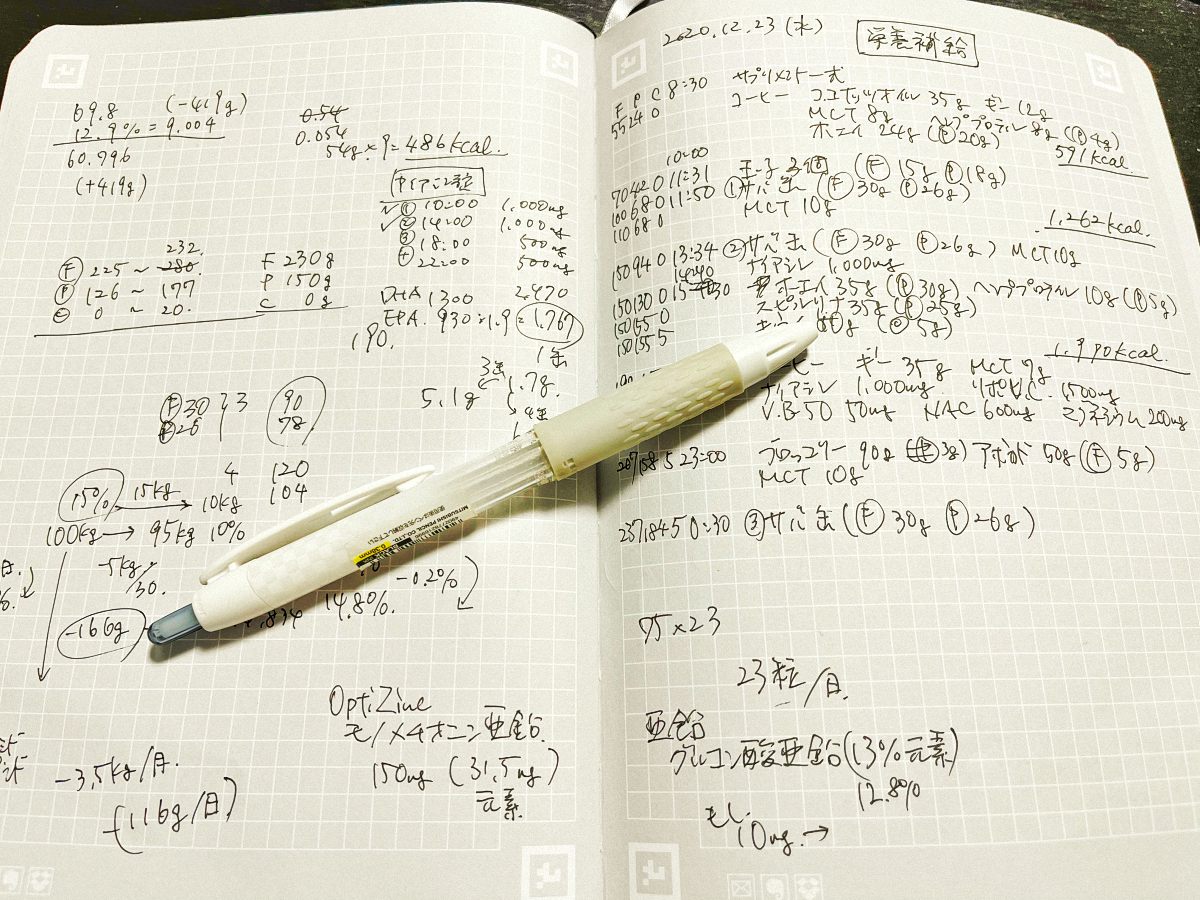 69.8 (-419g)
12.9% = 9.004
60.796
(+419g)
0.54
0.054
54g×9=486kcal.
ナイアシン2錠
✓① 10:00 1.000mg
✓② 14:00 1.000mg
③ 18:00 500mg
④ 22:00 500mg
232.
Ⓕ 225 ~ 280. F 230g
Ⓟ 126 ~ 177 P 150g
Ⓒ 0 ~ 20. C 0g
DHA 1300 2.470
EPA. 930 ×1.9 = 1.767
190.
1缶
3缶 1.7g.
5.1g
4缶
Ⓕ30 } 3 90
Ⓟ26 78
4 120
104
15% 15kg → 10kg
100kg → 95kg 10%
-5kg/
30.
-166g
.834 14.8%. -0.2%
OptiZinc
モノメチオニン亜鉛.
150mg (31.5mg)
元素.
-3.5kg/月.
(116g/日)
2020.12.23 (水) 栄養補給
F P C 8:30 サプリメント一式
55 24 0 コーヒー ココナッツオイル 35g ギー 12g
MCT 8g ヘンププロテイン 8g (Ⓟ4g)
ホエイ 24g (Ⓟ20g)
591kcal
10:00
70 42 0 11:31 玉子3個 (Ⓕ 15g Ⓟ18g)
100 68 0 11:50 ①サバ缶 (Ⓕ30g Ⓟ26g)
110 68 0 MCT 10g
1,262kcal
150 94 0 13:34 ②サバ缶 (Ⓕ30g Ⓟ26g) MCT10g
14:40 ナイアシン 1,000mg
150 130 0 ホエイ 35g (Ⓟ30g) ヘンププロテイン 10g (Ⓟ5g)
150 155 0 スピルリナ 35g (Ⓟ25g)
150 155 5 (Ⓒ5g)
1.990kcal.
コーヒー ギー 35g MCT 7g
ナイアシン 1,000mg リポV.C. 1,500mg
V.B-50 50mg NAC 600mg マグネシウム 200mg
207 158 5 23:00 ブロッコリー 90g (Ⓟ3g) アボカド 50g (Ⓕ5g)
MCT 10g
237 184 5 0:30 ③サバ缶 (Ⓕ 30g Ⓟ 26g)
75×23
23粒/日.
亜鉛
グルコン酸亜鉛 (13%元素)
12.8%
もし
10mg. →
MITSUBISHI PENCIL CO.,LTD.
0.38mm